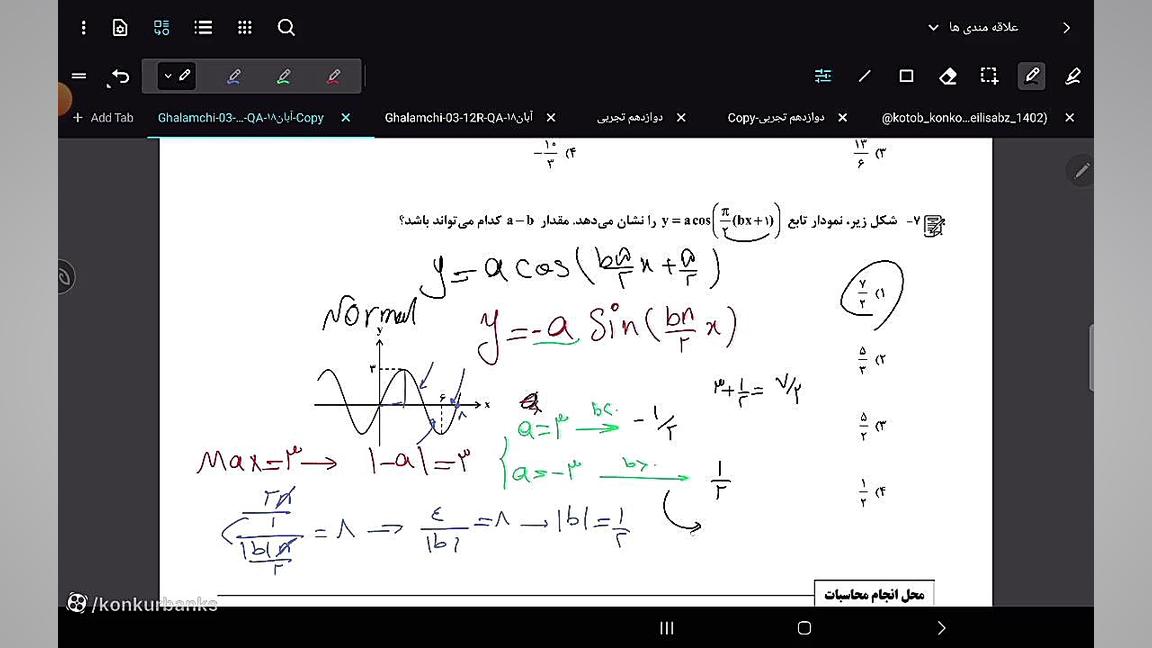 علاقه مندی ها
Add Tab
Ghalamchi-03-...-QA-آبان۱۸-Copy
Ghalamchi-03-12R-QA-آبان۱۸
دوازدهم تجربی
Copy-دوازدهم تجربی
@kotob_konko...eilisabz_1402)
۳) ۱۳/۶
۴) -۱۰/۳
۷- شکل زیر، نمودار تابع y = a cos(π/۲(bx+۱)) را نشان می‌دهد. مقدار a-b کدام می‌تواند باشد؟
۱) ۷/۲
۲) ۵/۳
۳) ۵/۲
۴) ۱/۲
y = a cos(bπ/۲ x + π/۲)
Normal
y = -a Sin(bπ/۲ x)
y
۳
۶
۸
x
۳+۱/۲= ۷/۲
a=۳ b<۰ -۱/۲
a=-۳ b>۰ ۱/۲
Max=۳ → |-a|=۳
۲π/۱ / |b|π/۲ = ۸ ⇒ ۴/|b| =۸ → |b|=۱/۲
محل انجام محاسبات
/konkurbanks